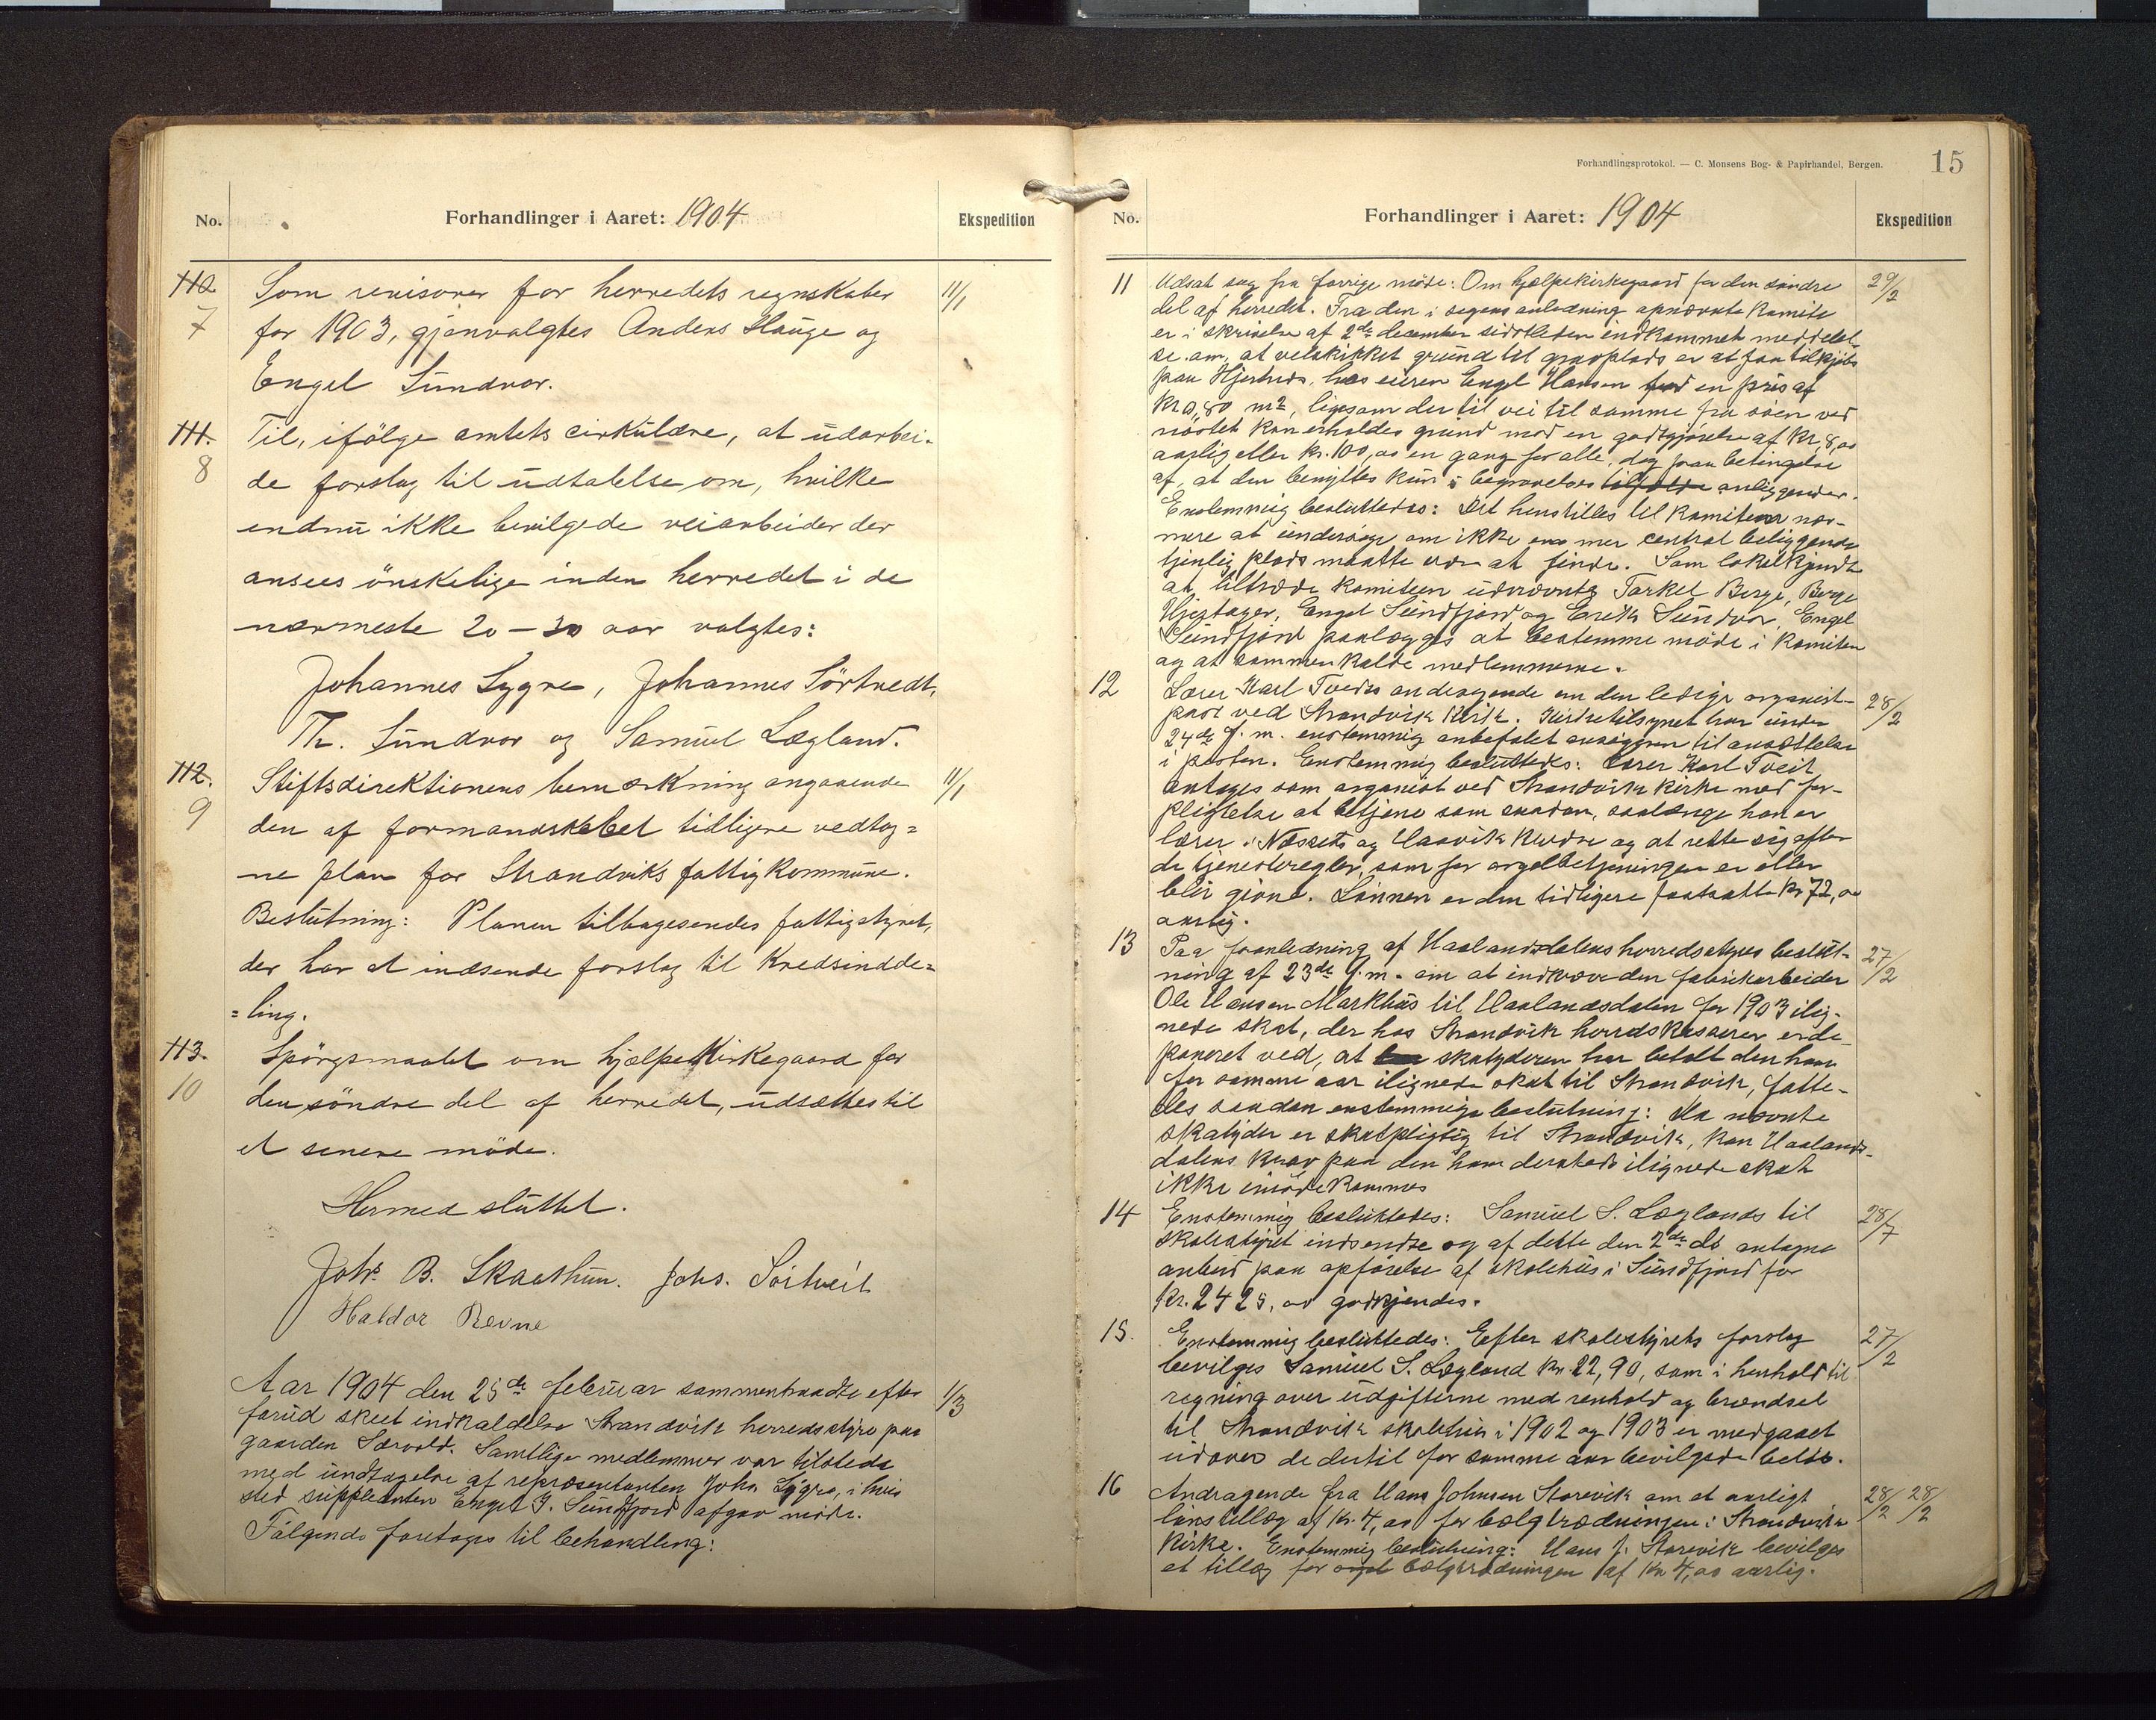 No.
Forhandlinger i Aaret: 1904
Ekspedition
110
7
Som revisorer for herredets regnskaber
11/1
for 1903, gjenvalgtes Anders Hauge og
Engel Sundvor.
111.
8
Til, ifölge amtets cirkulære, at udarbei-
de forslag til udtalelse om, hvilke
endnu ikke bevilgede veiarbeider der
ansees önskelige inden herredet i de
nærmeste 20-30 aar valgtes:
Johannes Lygre, Johannes Sörtvedt,
Th. Sundvor og Samuel Lægland.
112.
9
Stiftsdirektionens bemærkning angaaende
11/1
den af formandskabet tidligere vedtag=
ne plan for Strandviks fattigkommune.
Beslutning: Planen tilbagesendes fattigstyret,
der har at indsende forslag til Kredsindde=
=ling.
113.
10
Spörgsmaalet om hjælpekirkegaard for
den söndre del af herredet, udsættes til
et senere möde.
Hermed sluttet.
Johs B. Skaathun. Johs. Sörtveit
Haldor Revne
Aar 1904 den 25de februar sammentraadte efter
1/3
forud skeet indkaldelse Strandvik herredsstyre paa
gaarden Særvold. Samtlige medlemmer var tilstede
med undtagelse af repræsentanten John Lygre, i hvis
sted suppleanten Engel J. Sundfjord afgav möde.
Fölgende foretoges til behandling:
Forhandlingsprotokol. — C. Monsens Bog- & Papirhandel, Bergen.
15
No.
Forhandlinger i Aaret: 1904
Ekspedition
11
Udsat sag fra forrige möde: Om hjælpekirkegaard for den söndre
29/2
del af herredet. Fra den i sagens anledning opnævnte Komite
er i skrivelse af 2de december sidstleden indkommet meddelel-
se om, at velskikket grund til gravplads er at faa tilkjöbs
paa Hjertnes, hos eieren Engel Hansen for en pris af
Kr 0,80 m2, ligesom der til vei til samme fra söen ved
nöstet kan erholdes grund mod en godtgjörelse af Kr. 8,00
aarlig eller Kr. 100,00 en gang for alle, dog paa betingelse
af, at den benyttes kun i begravelses tilfælde anliggender.
Enstemmig besluttedes: Det henstilles til Komiteen nær-
mere at undersöge om ikke en mer central beliggende
tjenlig plads maatte være at finde. Som lokalkjendte
at tiltræde Komiteen udnævntes Torkel Berge, Berge
Engel Sundfjord og Erik Sundvor. Engel
Sundfjord paalægges at bestemme möde i Komiteen
og at sammenkalde medlemmerne.
12
Lærer Karl Tveits andragende om den ledige organist-
28/2
post ved Strandvik Kirke. Kirketilsynet har under
24de f. m. enstemmig anbefalet ansøgeren til ansættelse
i posten. Enstemmig besluttedes: Lærer Karl Tveit
antages som organist ved Strandvik Kirke med for-
pligtelse at betjene som saadan, saalænge han er
lærer i Næssets og Haavik Kredse og at rette sig efter
de tjenesteregler, som for orgelbetjeningen er eller
blir givne. Lönnen er den tidligere fastsatte Kr 72,00
aarlig.
13
Paa foranledning af Haalandsdalens herredsstyres beslut-
27/2
ning af 23de f. m. om at indkræve den fabrikarbeider
Ole Hansen Markhus til Haalandsdalen for 1903 ilig-
nede skat, der hos Strandvik herredskasserer er de-
poneret ved, at skatyderen har betalt den ham
for samme aar ilignede skat til Strandvik, fatte-
des saadan enstemmige beslutning: Da nævnte
skatyder er skatpligtig til Strandvik, kan Haalands-
dalens krav paa den ham dersteds ilignede skat
ikke imödekommes
14
Enstemmig besluttedes: Samuel S. Læglands til
28/7
skolestyret indsendte og af dette den 2de ds. antagne
anbud paa opförelse af skolehus i Sundfjord for
Kr. 2425,00 godkjendes.
15.
Enstemmig besluttedes: Efter skolestyrets forslag
27/2
bevilges Samuel S. Lægland Kr. 22,90, som i henhold til
regning over udgifterne med renhold og brændsel
til Strandvik skolehus i 1902 og 1903 er medgaaet
udover de dertil for samme aar bevilgede belöb.
16
Andragende fra Hans Johnsen Storevik om et aarligt
28/2 28/2
lönstillæg af Kr. 4,00 for bælgtrædningen i Strandvik
Kirke. Enstemmig beslutning: Hans J. Storevik bevilges
et tillæg for orgel bælgtrædningen af Kr 4,00 aarlig.